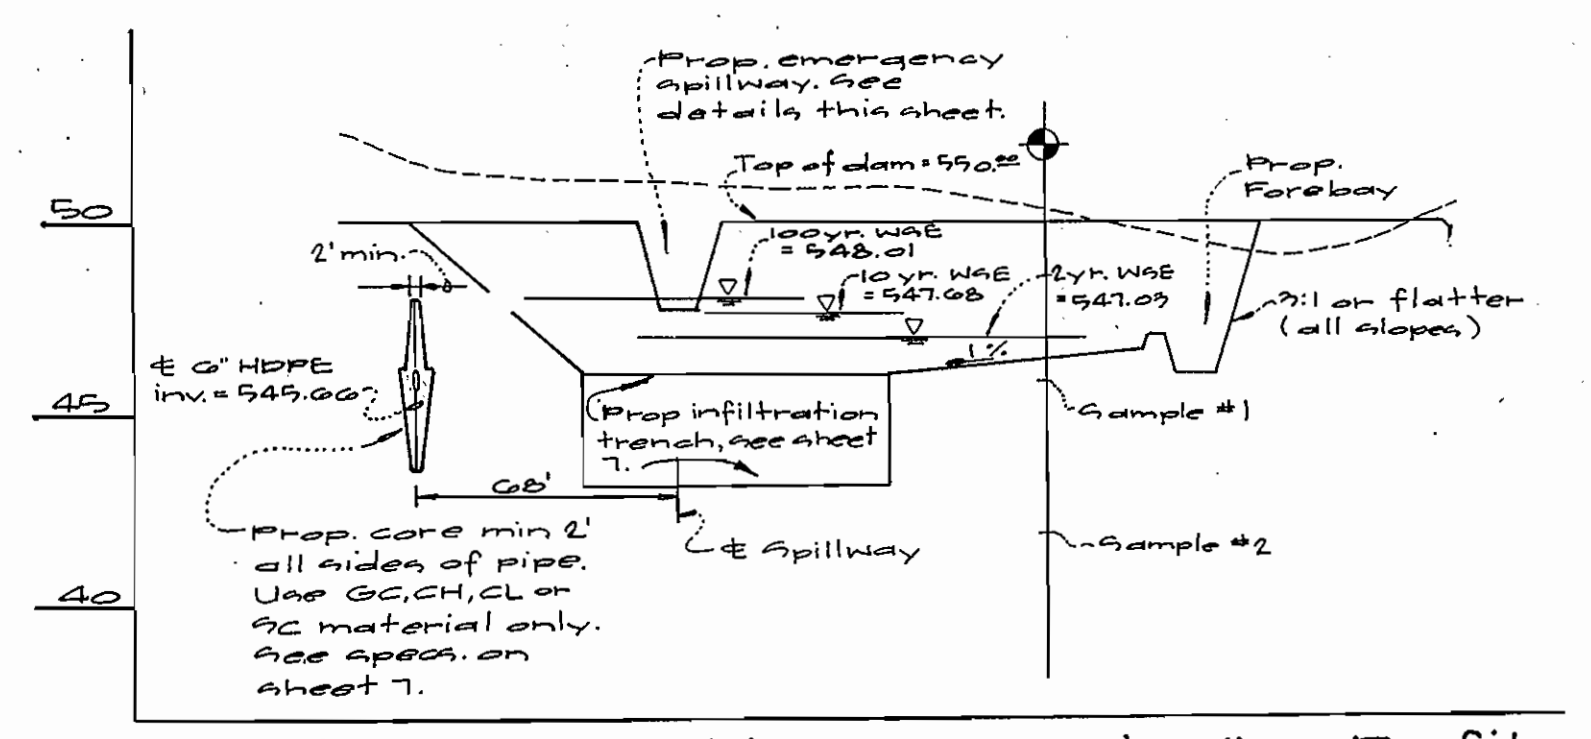 Prop. emergency
spillway. See
details this sheet.
Top of dam = 550.00
Prop.
Forebay
50
100 yr. WSE
= 548.01
2' min.
10 yr. WSE
= 547.68
2 yr. WSE
= 547.03
3:1 or flatter
(all slopes)
1%
℄ 6" HDPE
inv. = 545.66
45
Prop infiltration
trench, see sheet
7.
Sample #1
68'
Prop. core min 2'
all sides of pipe.
Use GC, CH, CL or
SC material only.
See specs. on
sheet 7.
℄ Spillway
Sample #2
40